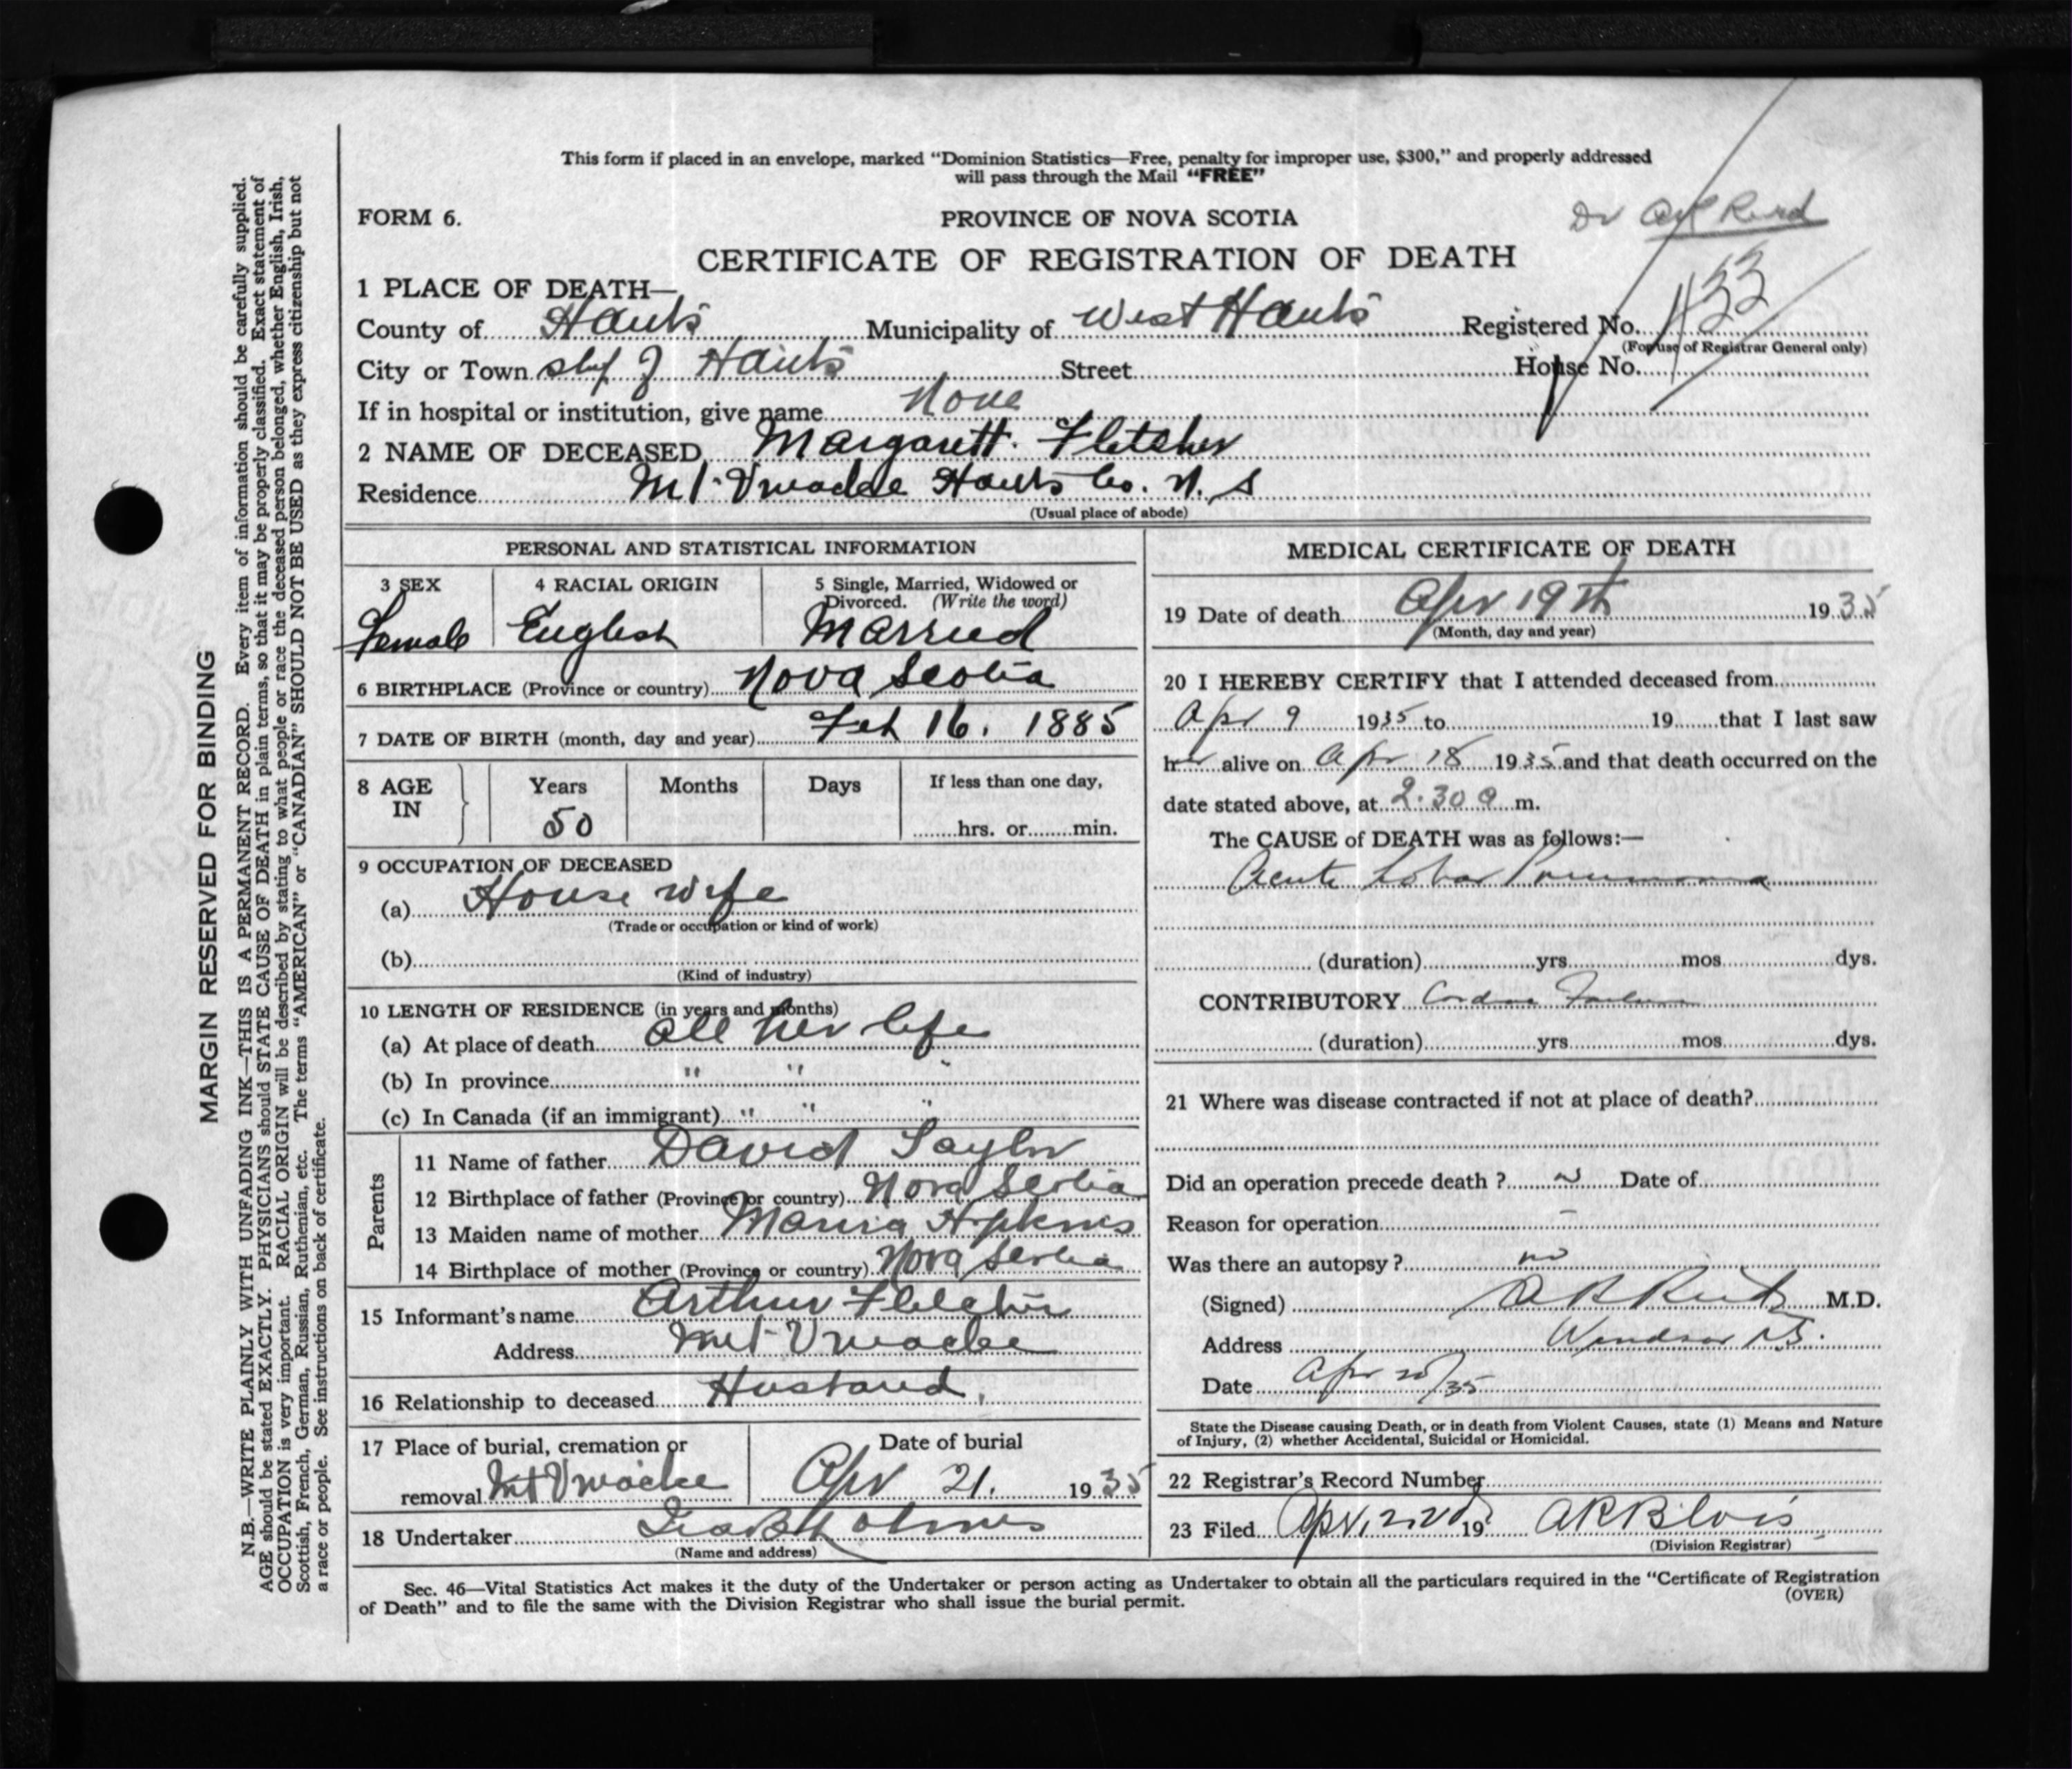 This form if placed in an envelope, marked “Dominion Statistics—Free, penalty for improper use, $300,” and properly addressed
will pass through the Mail “FREE”
FORM 6.
PROVINCE OF NOVA SCOTIA
Dr
CERTIFICATE OF REGISTRATION OF DEATH
1 PLACE OF DEATH—
County of Hants Municipality of West Hants Registered No. 1133
(For use of Registrar General only)
City or Town Hants Street House No.
If in hospital or institution, give name None
2 NAME OF DECEASED Margarett Fletcher
Residence Mt. Uniacke Hants Co. N. S
(Usual place of abode)
PERSONAL AND STATISTICAL INFORMATION
3 SEX 4 RACIAL ORIGIN 5 Single, Married, Widowed or
Divorced. (Write the word)
Female English Married
6 BIRTHPLACE (Province or country) Nova Scotia
7 DATE OF BIRTH (month, day and year) Feb 16. 1885
8 AGE IN Years Months Days If less than one day,
50 hrs. or min.
9 OCCUPATION OF DECEASED
(a) House wife
(Trade or occupation or kind of work)
(b)
(Kind of industry)
10 LENGTH OF RESIDENCE (in years and months)
(a) At place of death all her life
(b) In province " " "
(c) In Canada (if an immigrant) " " "
Parents
11 Name of father David Taylor
12 Birthplace of father (Province or country) Nova Scotia
13 Maiden name of mother Maria Hopkins
14 Birthplace of mother (Province or country) Nova Scotia
15 Informant's name Arthur Fletcher
Address Mt Uniacke
16 Relationship to deceased Husband
17 Place of burial, cremation or Date of burial
removal Mt Uniacke Apr 21. 1935
18 Undertaker Holmes
(Name and address)
MEDICAL CERTIFICATE OF DEATH
19 Date of death Apr 19th 1935
(Month, day and year)
20 I HEREBY CERTIFY that I attended deceased from
Apr 9 1935 to 19 that I last saw
her alive on Apr 18 1935 and that death occurred on the
date stated above, at 2.30 a m.
The CAUSE of DEATH was as follows:—
Acute Lobar Pneumonia
(duration) yrs. mos. dys.
CONTRIBUTORY Cardiac Failure
(duration) yrs. mos. dys.
21 Where was disease contracted if not at place of death?
Did an operation precede death? no Date of
Reason for operation –
Was there an autopsy? no
(Signed) M.D.
Address Windsor N.S.
Date Apr 20/35
State the Disease causing Death, or in death from Violent Causes, state (1) Means and Nature
of Injury, (2) whether Accidental, Suicidal or Homicidal.
22 Registrar's Record Number
23 Filed Apr. 22nd 19 A R Blois
(Division Registrar)
Sec. 46—Vital Statistics Act makes it the duty of the Undertaker or person acting as Undertaker to obtain all the particulars required in the “Certificate of Registration
of Death” and to file the same with the Division Registrar who shall issue the burial permit.
(OVER)
MARGIN RESERVED FOR BINDING
N.B.—WRITE PLAINLY WITH UNFADING INK—THIS IS A PERMANENT RECORD. Every item of information should be carefully supplied.
AGE should be stated EXACTLY. PHYSICIANS should STATE CAUSE OF DEATH in plain terms, so that it may be properly classified. Exact statement of
OCCUPATION is very important. RACIAL ORIGIN will be described by stating to what people or race the deceased person belonged, whether English, Irish,
Scottish, French, German, Russian, Ruthenian, etc. The terms “AMERICAN” or “CANADIAN” SHOULD NOT BE USED as they express citizenship but not
a race or people. See instructions on back of certificate.